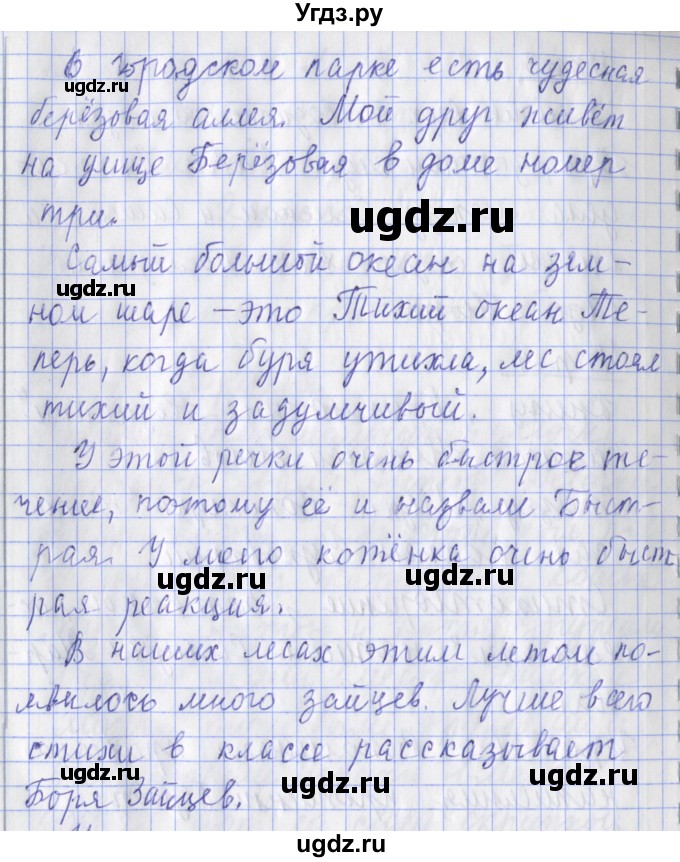 Угдз.ру
В городском парке есть чудесная
ugdz.ru
ugdz.ru
берёзовая аллея. Мой друг живёт
на улице Берёзовая в доме номер
три.
ugdz.ru
Самый большой океан на зем-
ugdz.ru
ном шаре – это Тихий океан Те-
перь, когда буря утихла, лес стоял
ugdz.ru
ugdz.ru
тихий и задумчивый.
У этой речки очень быстрое те-
чение, поэтому её и назвали Быст-
рая. У моего котёнка очень быст
ugdz.ru
ugdz.ru
рая реакция.
В наших лесах этим летом по-
явилось много зайцев. Лучше всего
стихи в классе рассказывает
ugdz.ru
ugdz.ru
Боря Зайцев.
ugdz.ru
ugdz.ru